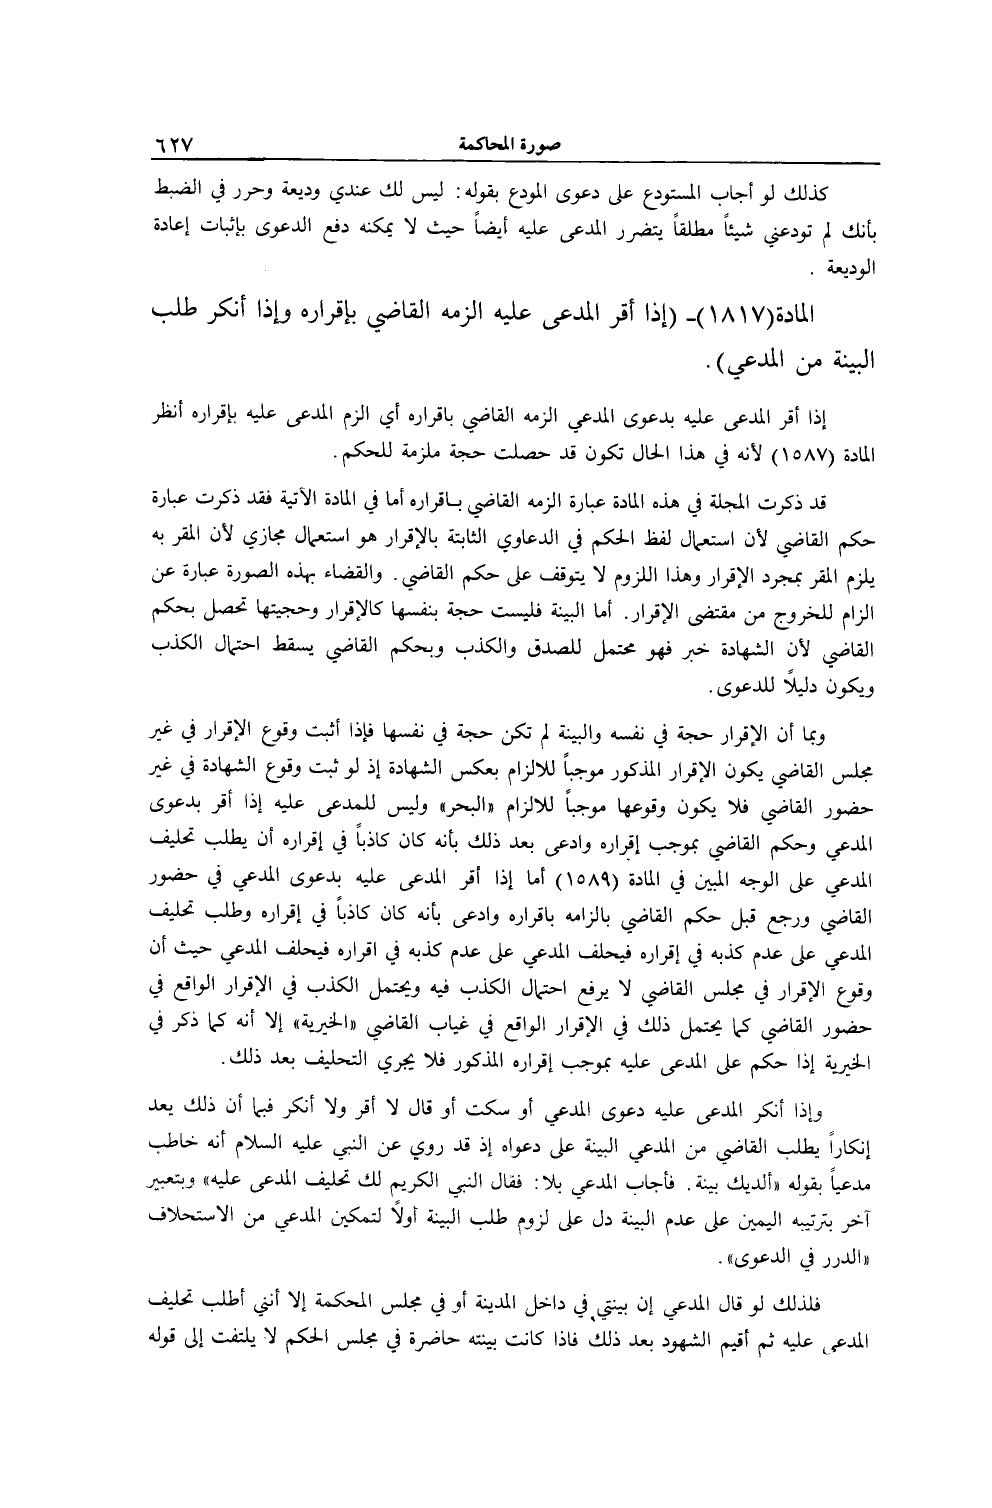 صورة المحاكمة ٦٢٧
كذلك لو أجاب المستودع على دعوى المودع بقوله: ليس لك عندي وديعة وحرر في الضبط
بأنك لم تودعني شيئاً مطلقاً يتضرر المدعى عليه أيضاً حيث لا يمكنه دفع الدعوى بإثبات إعادة
الوديعة .
المادة(١٨١٧)ـ (إذا أقر المدعى عليه الزمه القاضي بإقراره وإذا أنكر طلب
البينة من المدعي).
إذا أقر المدعى عليه بدعوى المدعي الزمه القاضي باقراره أي الزم المدعى عليه بإقراره أنظر
المادة (١٥٨٧) لأنه في هذا الحال تكون قد حصلت حجة ملزمة للحكم.
قد ذكرت المجلة في هذه المادة عبارة الزمه القاضي بـاقراره أما في المادة الآتية فقد ذكرت عبارة
حكم القاضي لأن استعمال لفظ الحكم في الدعاوي الثابتة بالإقرار هو استعمال مجازي لأن المقر به
يلزم المقر بمجرد الإقرار وهذا اللزوم لا يتوقف على حكم القاضي. والقضاء بهذه الصورة عبارة عن
الزام للخروج من مقتضى الإقرار. أما البينة فليست حجة بنفسها كالإقرار وحجيتها تحصل بحكم
القاضي لأن الشهادة خبر فهو محتمل للصدق والكذب وبحكم القاضي يسقط احتمال الكذب
ويكون دليلاً للدعوى.
وبما أن الإقرار حجة في نفسه والبينة لم تكن حجة في نفسها فإذا أثبت وقوع الإقرار في غير
مجلس القاضي يكون الإقرار المذكور موجباً للالزام بعكس الشهادة إذ لو ثبت وقوع الشهادة في غير
حضور القاضي فلا يكون وقوعها موجباً للالزام «البحر» وليس للمدعى عليه إذا أقر بدعوى
المدعي وحكم القاضي بموجب إقراره وادعى بعد ذلك بأنه كان كاذباً في إقراره أن يطلب تحليف
المدعي على الوجه المبين في المادة (١٥٨٩) أما إذا أقر المدعى عليه بدعوى المدعي في حضور
القاضي ورجع قبل حكم القاضي بالزامه باقراره وادعى بأنه كان كاذباً في إقراره وطلب تحليف
المدعي على عدم كذبه في إقراره فيحلف المدعي على عدم كذبه في اقراره فيحلف المدعي حيث أن
وقوع الإقرار في مجلس القاضي لا يرفع احتمال الكذب فيه ويحتمل الكذب في الإقرار الواقع في
حضور القاضي كما يحتمل ذلك في الإقرار الواقع في غياب القاضي «الخيرية» إلا أنه كما ذكر في
الخيرية إذا حكم على المدعى عليه بموجب إقراره المذكور فلا يجري التحليف بعد ذلك.
وإذا أنكر المدعى عليه دعوى المدعي أو سكت أو قال لا أقر ولا أنكر فبما أن ذلك يعد
إنكاراً يطلب القاضي من المدعي البينة على دعواه إذ قد روي عن النبي عليه السلام أنه خاطب
مدعياً بقوله «ألديك بينة. فأجاب المدعي بلا: فقال النبي الكريم لك تحليف المدعى عليه» وبتعبير
آخر بترتيبه اليمين على عدم البينة دل على لزوم طلب البينة أولاً لتمكين المدعي من الاستحلاف
«الدرر في الدعوى».
فلذلك لو قال المدعي إن بينتي في داخل المدينة أو في مجلس المحكمة إلا أنني أطلب تحليف
المدعى عليه ثم أقيم الشهود بعد ذلك فاذا كانت بينته حاضرة في مجلس الحكم لا يلتفت إلى قوله